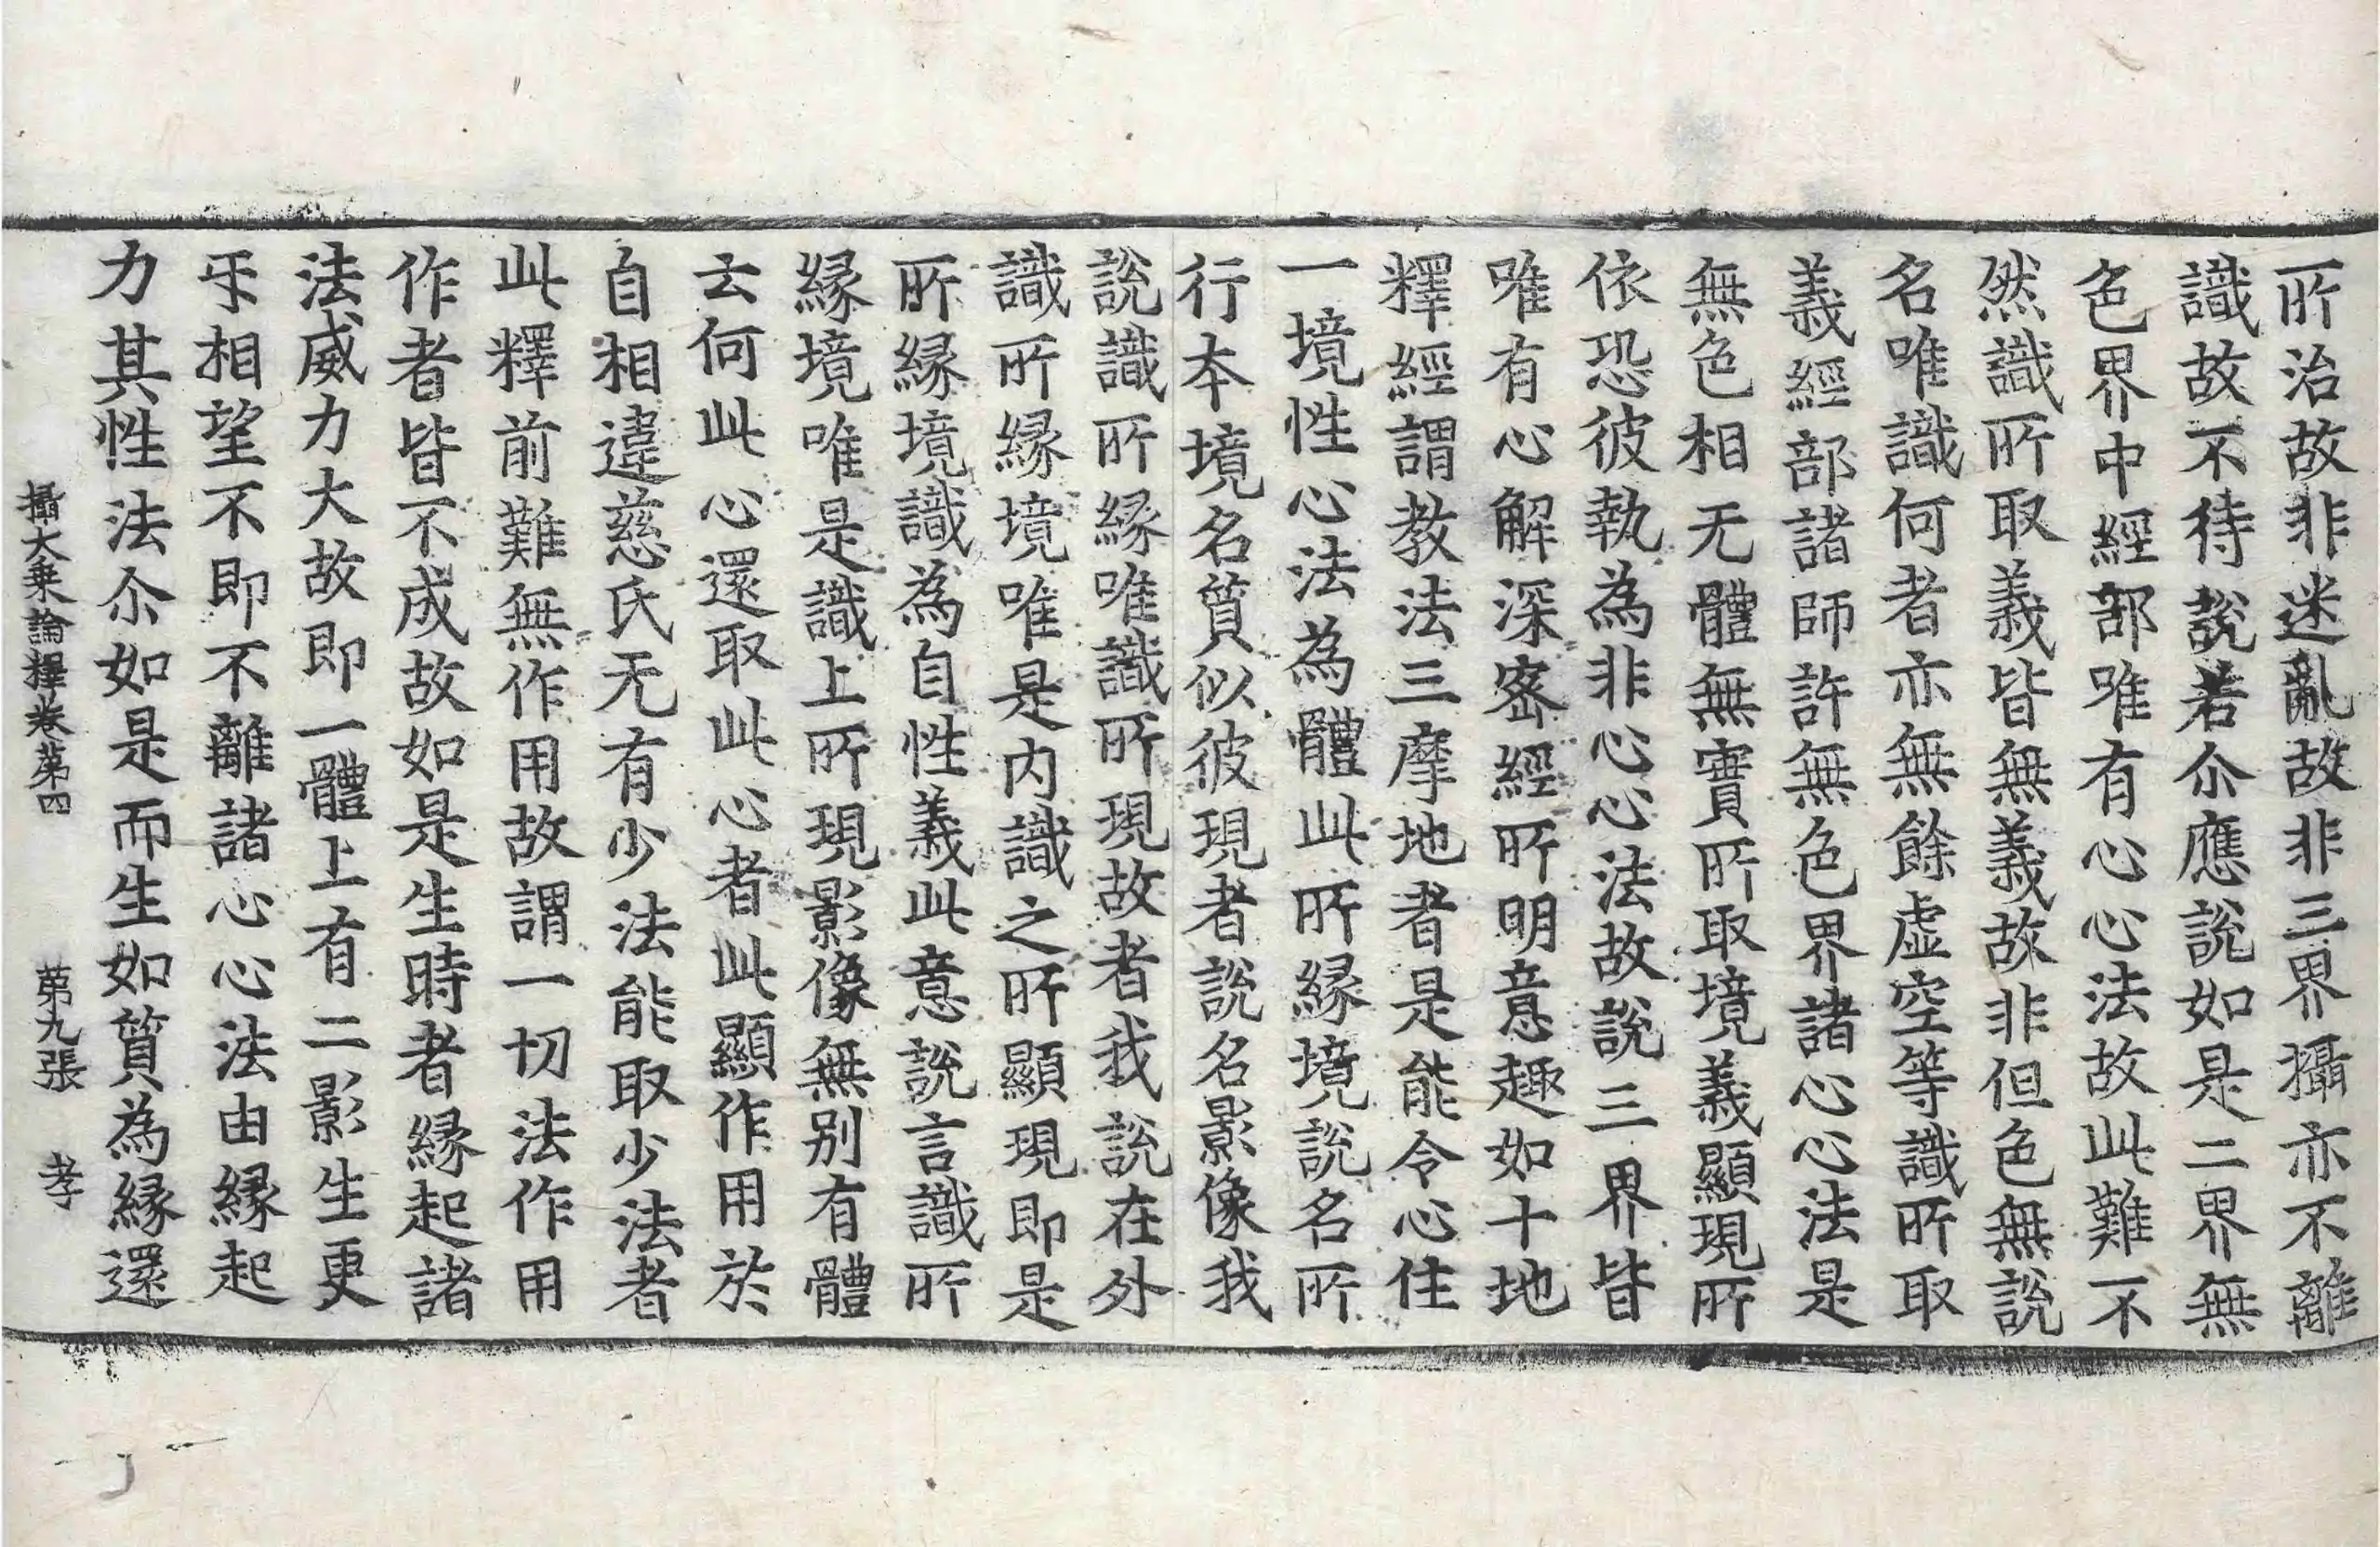 所治故非迷亂故非三界攝亦不離
識故不待說若尒應說如是二界無
色界中經部唯有心心法故此難不
然識所取義皆無義故非但色無說
名唯識何者亦無餘虛空等識所取
義經部諸師許無色界諸心心法是
無色相无體無實所取境義顯現所
依恐彼執為非心心法故說三界皆
唯有心解深密經所明意趣如十地
釋經謂教法三摩地者是能令心住
一境性心法為體此所緣境說名所
行本境名質似彼現者說名影像我
說識所緣唯識所現故者我說在外
識所緣境唯是內識之所顯現即是
所緣境識為自性義此意說言識所
緣境唯是識上所現影像無別有體
云何此心還取此心者此顯作用於
自相違慈氏无有少法能取少法者
此釋前難無作用故謂一切法作用
作者皆不成故如是生時者緣起諸
法威力大故即一體上有二影生更
𠄔相望不即不離諸心心法由緣起
力其性法尒如是而生如質為緣還
攝大乘論釋卷苐四 苐九張 孝